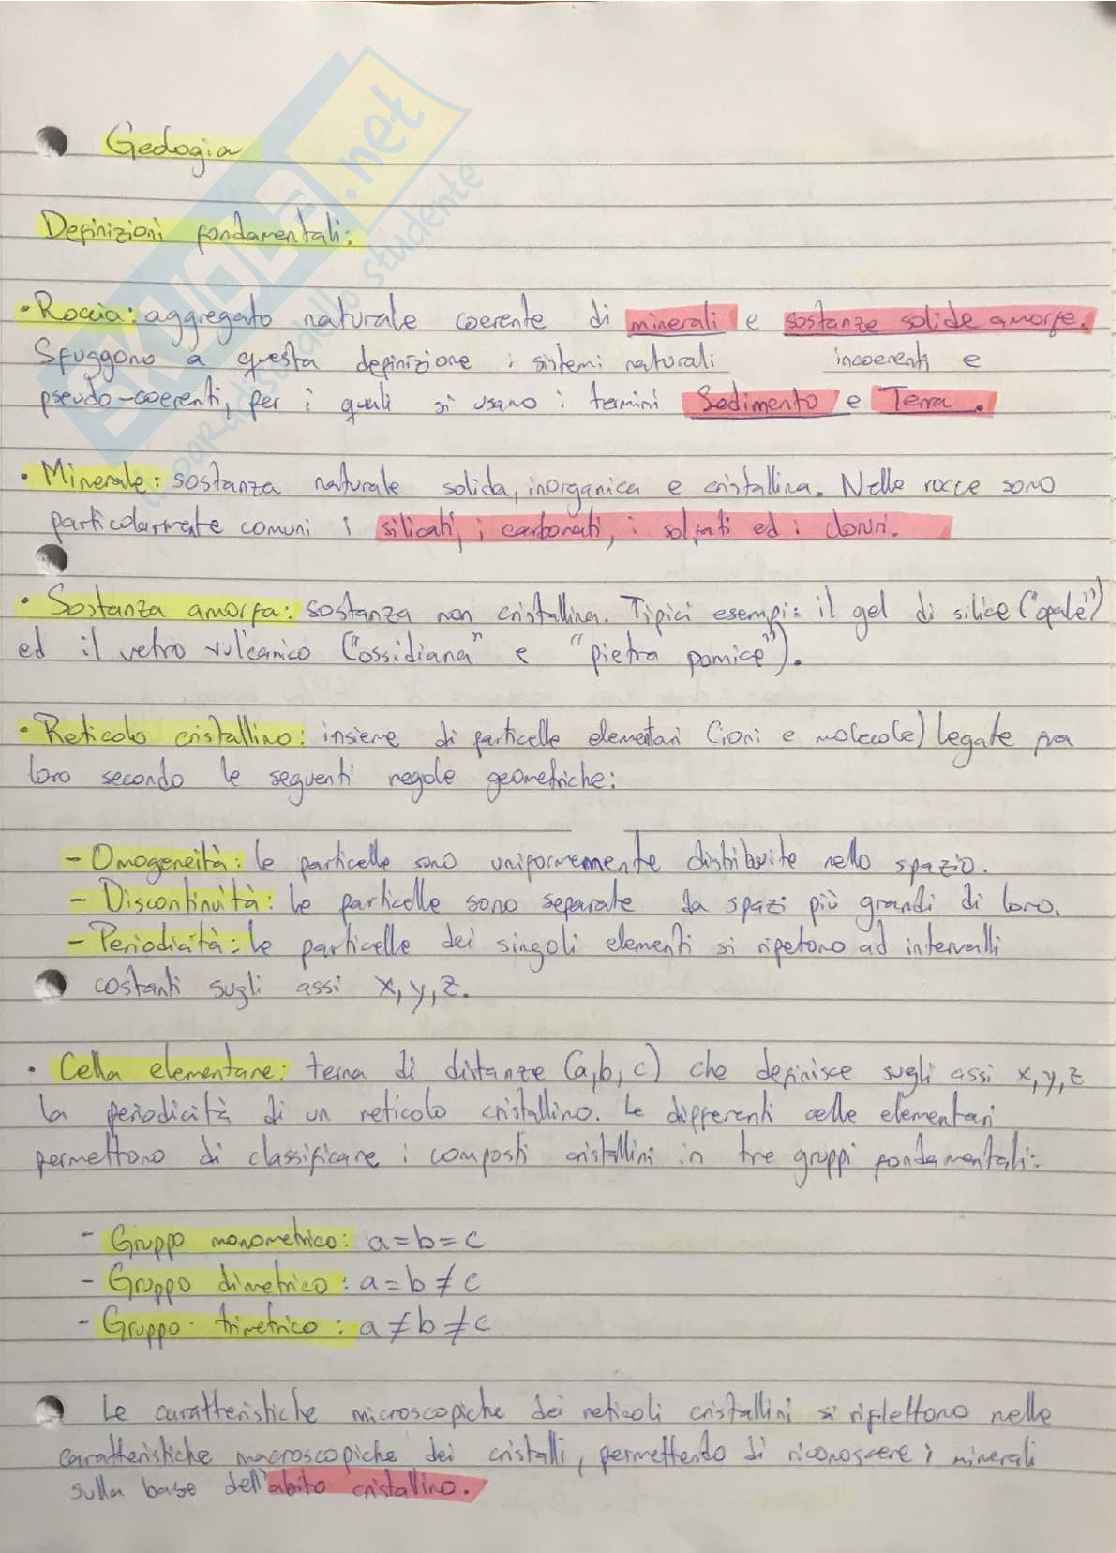 Geologia
Definizioni fondamentali:
• Roccia: aggregato naturale coerente di minerali e sostanze solide amorfe.
Sfuggono a questa definizione i sistemi naturali incoerenti e
pseudo-coerenti, per i quali si usano i termini Sedimento e Terra.
• Minerale: sostanza naturale solida, inorganica e cristallina. Nelle rocce sono
particolarmente comuni i silicati, i carbonati, i solfati ed i cloruri.
• Sostanza amorfa: sostanza non cristallina. Tipici esempi: il gel di silice ("opale")
ed il vetro vulcanico ("ossidiana" e "pietra pomice").
• Reticolo cristallino: insieme di particelle elementari (ioni e molecole) legate fra
loro secondo le seguenti regole geometriche:
- Omogeneità: le particelle sono uniformemente distribuite nello spazio.
- Discontinuità: le particelle sono separate da spazi più grandi di loro.
- Periodicità: le particelle dei singoli elementi si ripetono ad intervalli
costanti sugli assi x, y, z.
• Cella elementare: terna di distanze (a, b, c) che definisce sugli assi x, y, z
la periodicità di un reticolo cristallino. Le differenti celle elementari
permettono di classificare i composti cristallini in tre gruppi fondamentali:
- Gruppo monometrico: a = b = c
- Gruppo dimetrico: a = b ≠ c
- Gruppo trimetrico: a ≠ b ≠ c
Le caratteristiche microscopiche dei reticoli cristallini si riflettono nelle
caratteristiche macroscopiche dei cristalli, permettendo di riconoscere i minerali
sulla base dell'abito cristallino.
SKUOLA.net
il paradiso dello studente